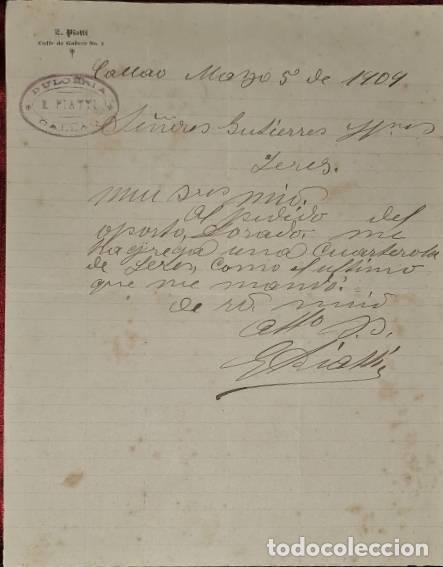 E. Piatti
Calle de Galvez No. 2
DULCERIA
E. PIATTI
CALLAO
Callao Mayo 5 de 1909
Señores Gutierres Hnos
Jeres.
Mui Sres mios.
Al pedido del
oporto, Dorado, me
Hagrega una cuarterola
de Jeres, como el ultimo
que me mandó.
de Vd
atto S.
E Piatti
todocoleccion.net